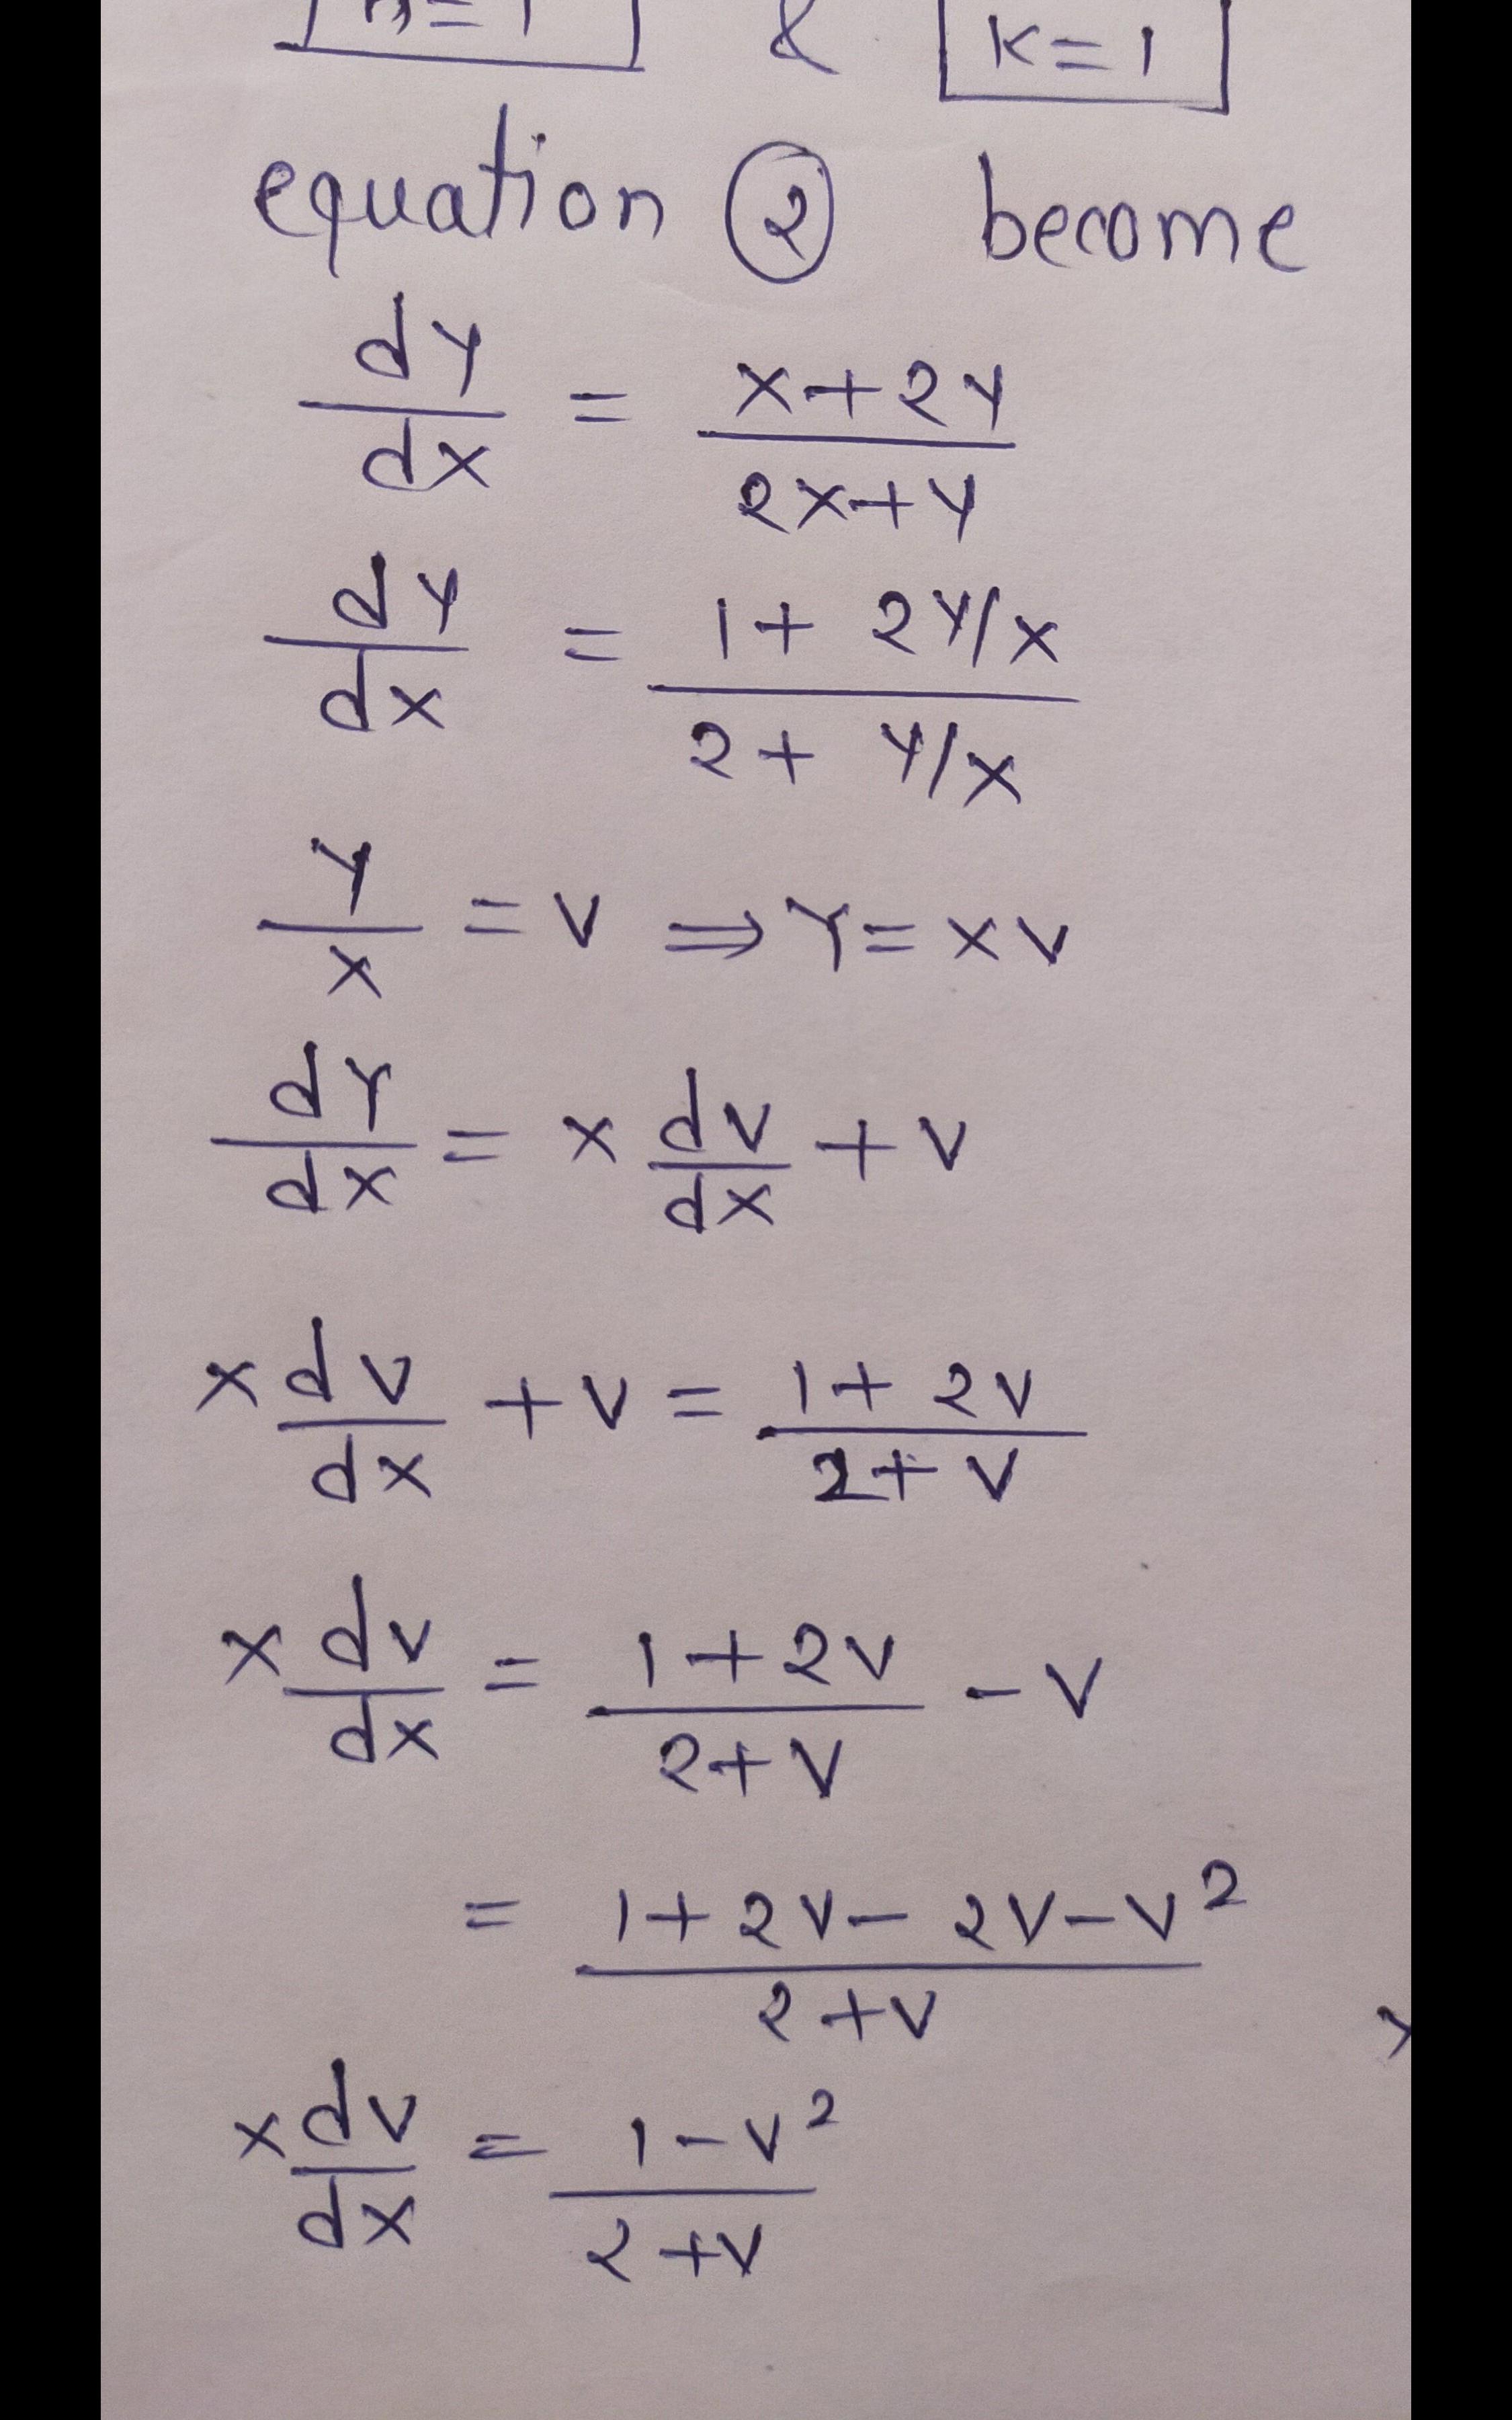 n=1 & K=1
equation ② become
dY/dX = X+2Y/2X+Y
dY/dX = 1+ 2Y/X / 2+ Y/X
Y/X = V ⇒ Y= XV
dY/dX = X dV/dX + V
X dV/dX + V = 1+ 2V/2+ V
X dV/dX = 1+2V/2+V - V
= 1+2V-2V-V²/2+V
X dV/dX = 1-V²/2+V